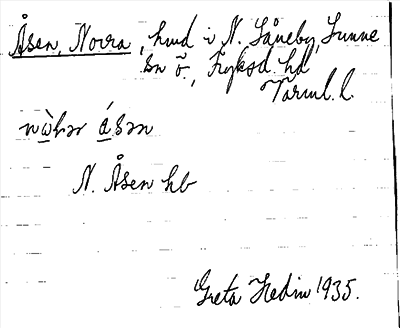 Åsen, Norra, hmd i N. Låneby, Sunne
sn ö., Fryksd. hd
Värml. l.
N. Åsen hb
Greta Hedin 1935.